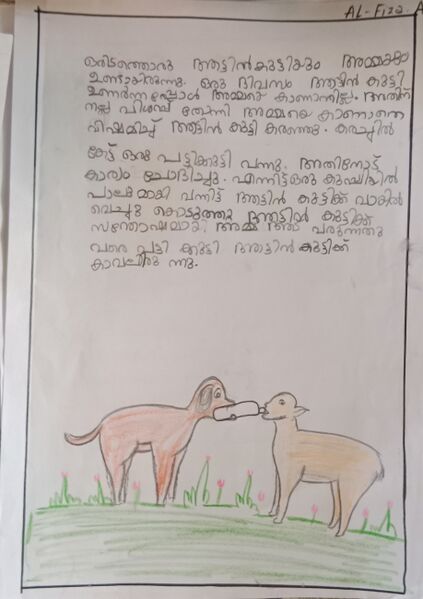 AL-Fiza. A
ഒരിടത്തൊരു ആട്ടിൻകുട്ടിയും അമ്മയും
ഉണ്ടായിരുന്നു. ഒരു ദിവസം ആട്ടിൻ കുട്ടി
ഉണർന്നപ്പോൾ അമ്മയെ കാണാനില്ല. അതിന്
നല്ല വിശപ്പ് തോന്നി അമ്മയെ കാണാതെ
വിഷമിച്ച് ആട്ടിൻ കുട്ടി കരഞ്ഞു. കരച്ചിൽ
കേട്ട് ഒരു പട്ടിക്കുട്ടി വന്നു. അതിനോട്
കാര്യം ചോദിച്ചു. എന്നിട്ട് ഒരു കുപ്പിയിൽ
പാലുമായി വന്നിട്ട് ആട്ടിൻ കുട്ടിക്ക് വായിൽ
വെച്ചു കൊടുത്തു ആട്ടിൻ കുട്ടിക്ക്
സന്തോഷമായി. അമ്മ വരുന്നതു
വരെ പട്ടി ക്കുട്ടി ആട്ടിൻ കുട്ടിക്ക്
കാവലിരു ന്നു.